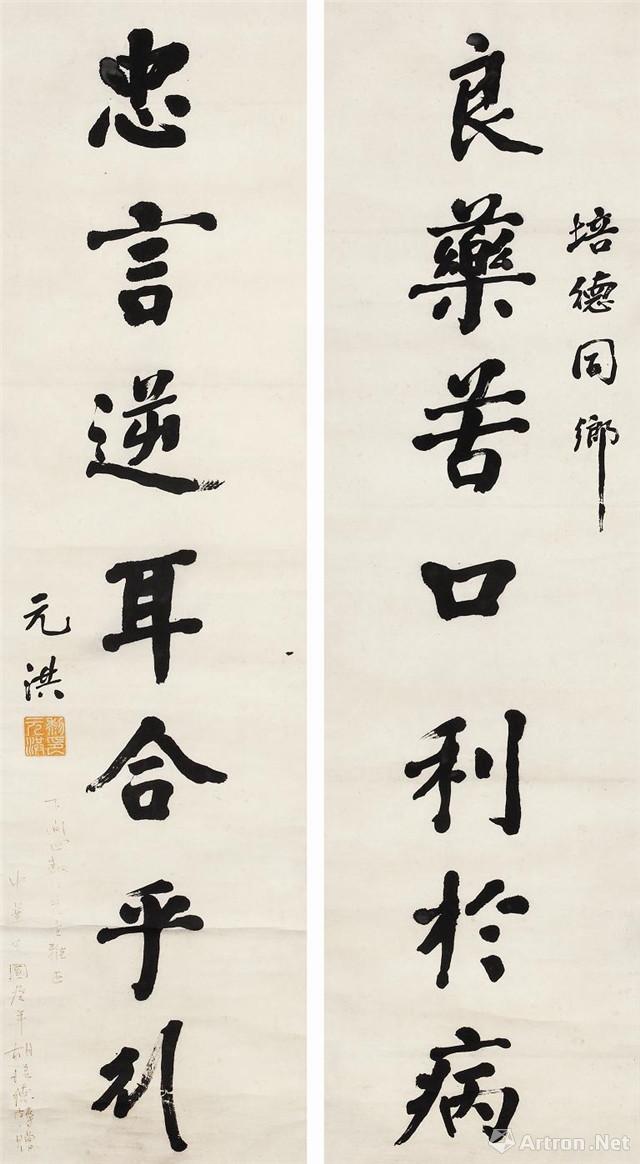 培德同鄉
良藥苦口利於病
忠言逆耳合乎行
元洪
黎印
元洪
Artron.Net